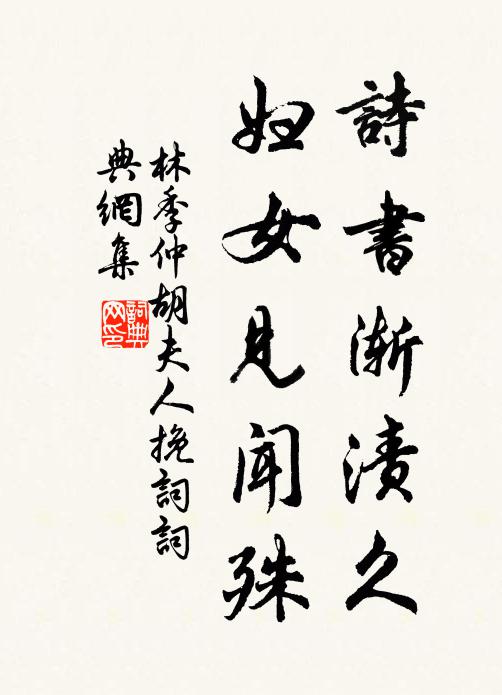 詩書漸漬久
妇女見闻殊
林季仲胡夫人挽詞詞
典網集
詞典
网印